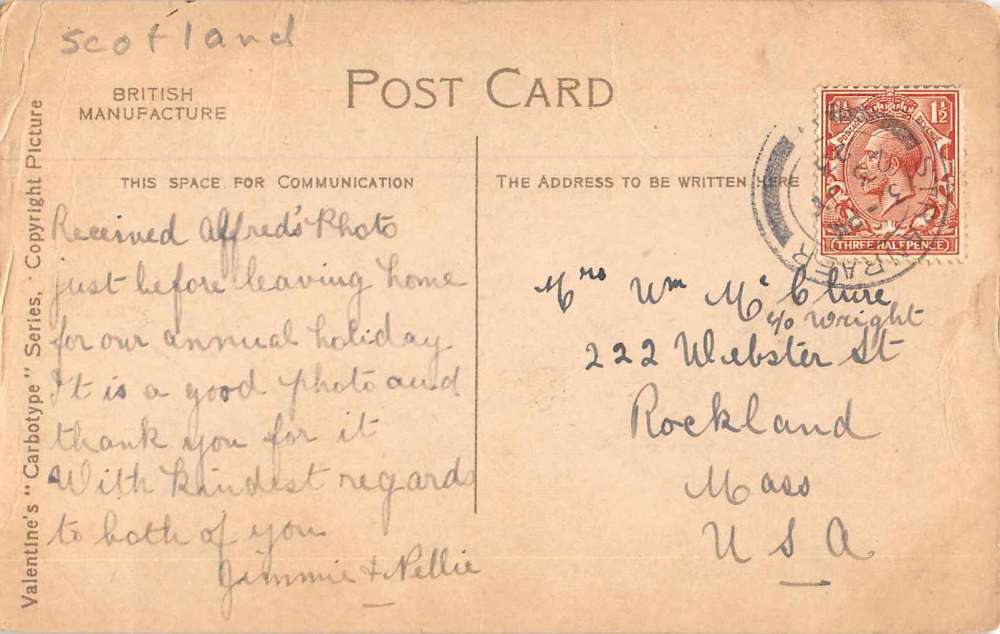 Scotland
POST CARD
BRITISH
MANUFACTURE
Valentine's "Carbotype" Series, Copyright Picture
THIS SPACE FOR COMMUNICATION
THE ADDRESS TO BE WRITTEN HERE
Received Alfred's Photo
just before leaving home
for our annual holiday
It is a good photo and
thank you for it
With kindest regards
to both of you
Jimmie & Nellie
Mrs Wm McClure
c/o Wright
222 Webster St
Rockland
Mass
U S A
1½ 1½
POSTAGE REVENUE
THREE HALFPENCE
STRANRAER